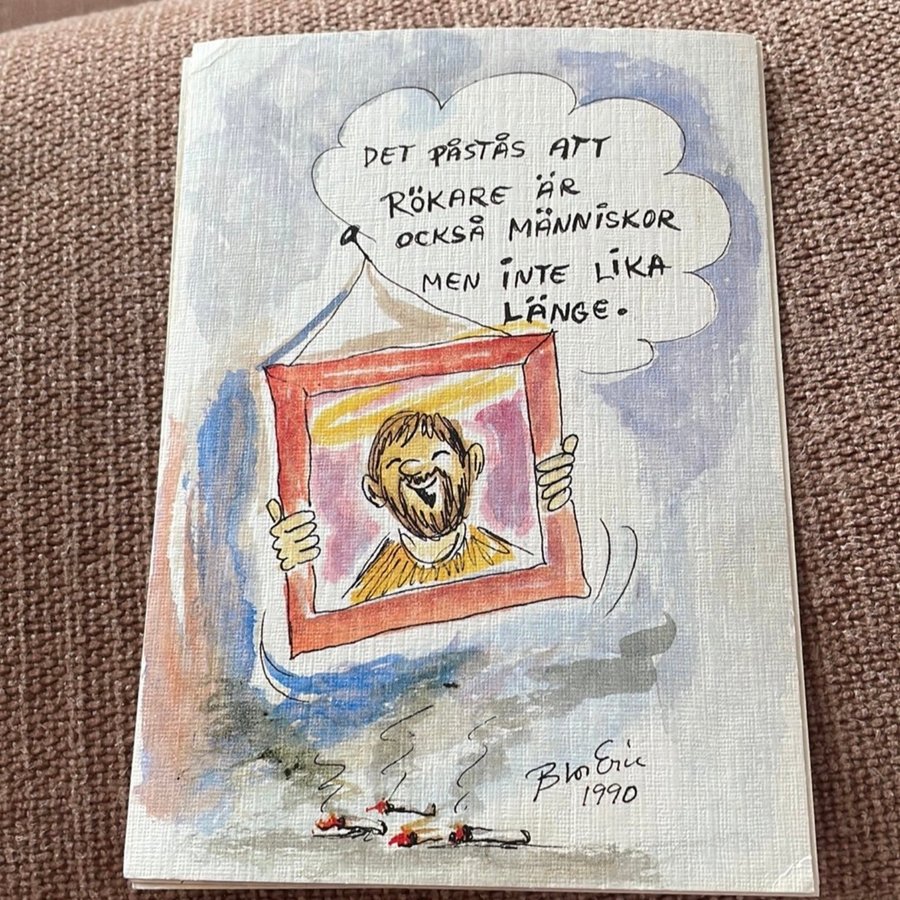 DET PÅSTÅS ATT
RÖKARE ÄR
OCKSÅ MÄNNISKOR
MEN INTE LIKA
LÄNGE.
1990